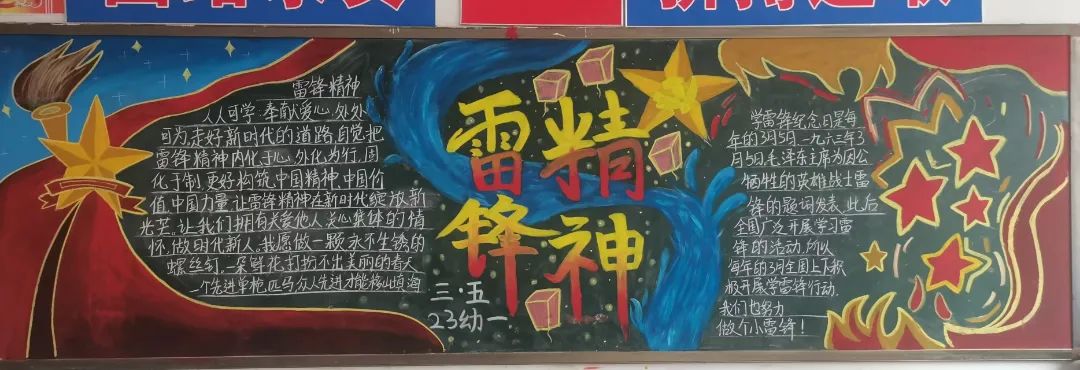 雷锋精神
人人可学，奉献爱心，处处
可为，走好新时代的道路，自觉把
雷锋精神内化于心，外化为行，固
化于制，更好构筑中国精神，中国价
值，中国力量，让雷锋精神在新时代绽放新
光芒，让我们拥有关爱他人，关心集体的情
怀，做时代新人，我愿做一颗永不生锈的
螺丝钉，一朵鲜花打扮不出美丽的春天
一个先进单枪匹马，众人先进才能移山填海
雷锋
精神
三·五
23幼一
学雷锋纪念日是每
年的3月5日，一九六三年3
月5日，毛泽东主席为因公
牺牲的英雄战士雷
锋的题词发表，此后
全国广泛开展学习雷
锋的活动，所以
每年的3月全国上下积
极开展学雷锋行动，
我们也努力
做个小雷锋！